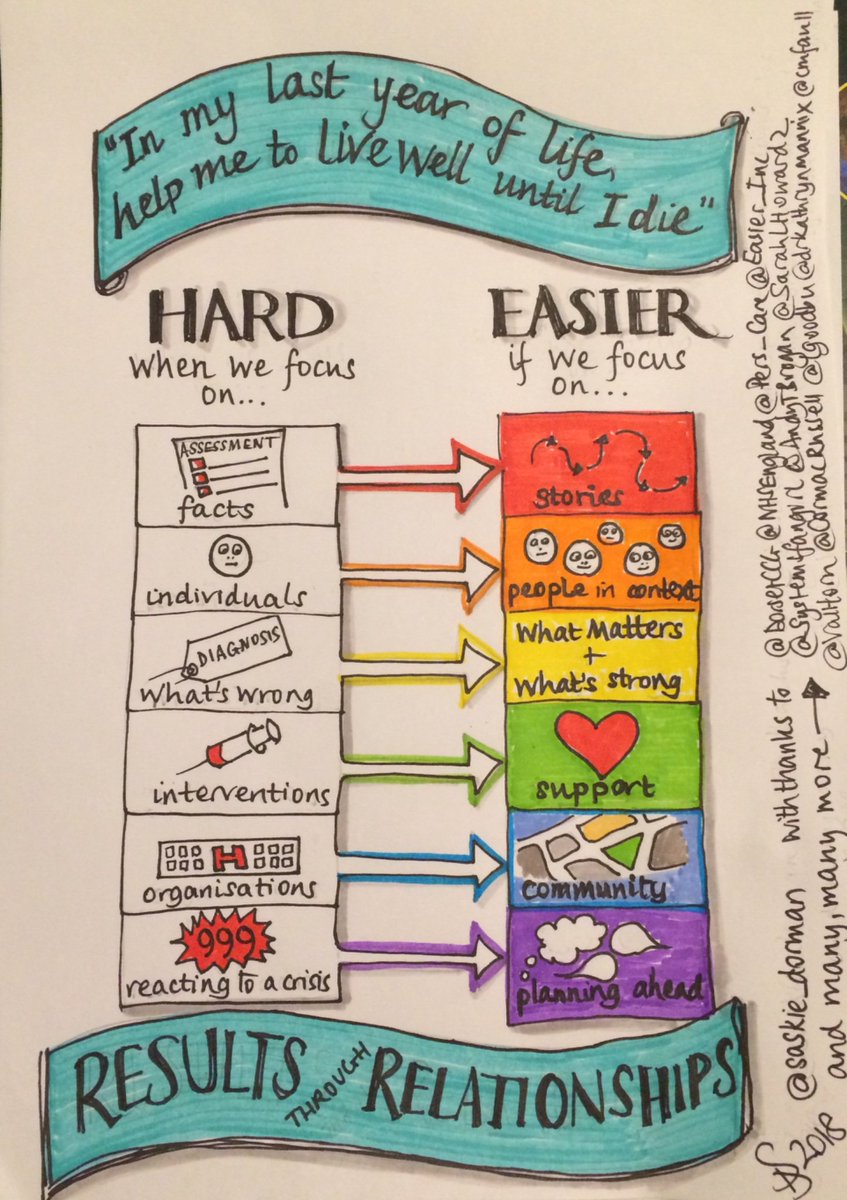 "In my last year of life,
help me to live well until I die"
HARD
when we focus
on...
EASIER
if we focus
on...
ASSESSMENT
facts
stories
individuals
people in context
DIAGNOSIS
what's wrong
What Matters
+
What's strong
interventions
support
H
organisations
community
999
reacting to a crisis
planning ahead
RESULTS THROUGH RELATIONSHIPS
@saskie_dorman with thanks to
@DorsetCCG @NHSEngland @Pers_Care @Easier_Inc
@Systemfangirl @AndyTBroman @SarahLHoward2
@ValHorn @CormacRussell @drkathrynmannix @cmfaull
and many, many more
2018